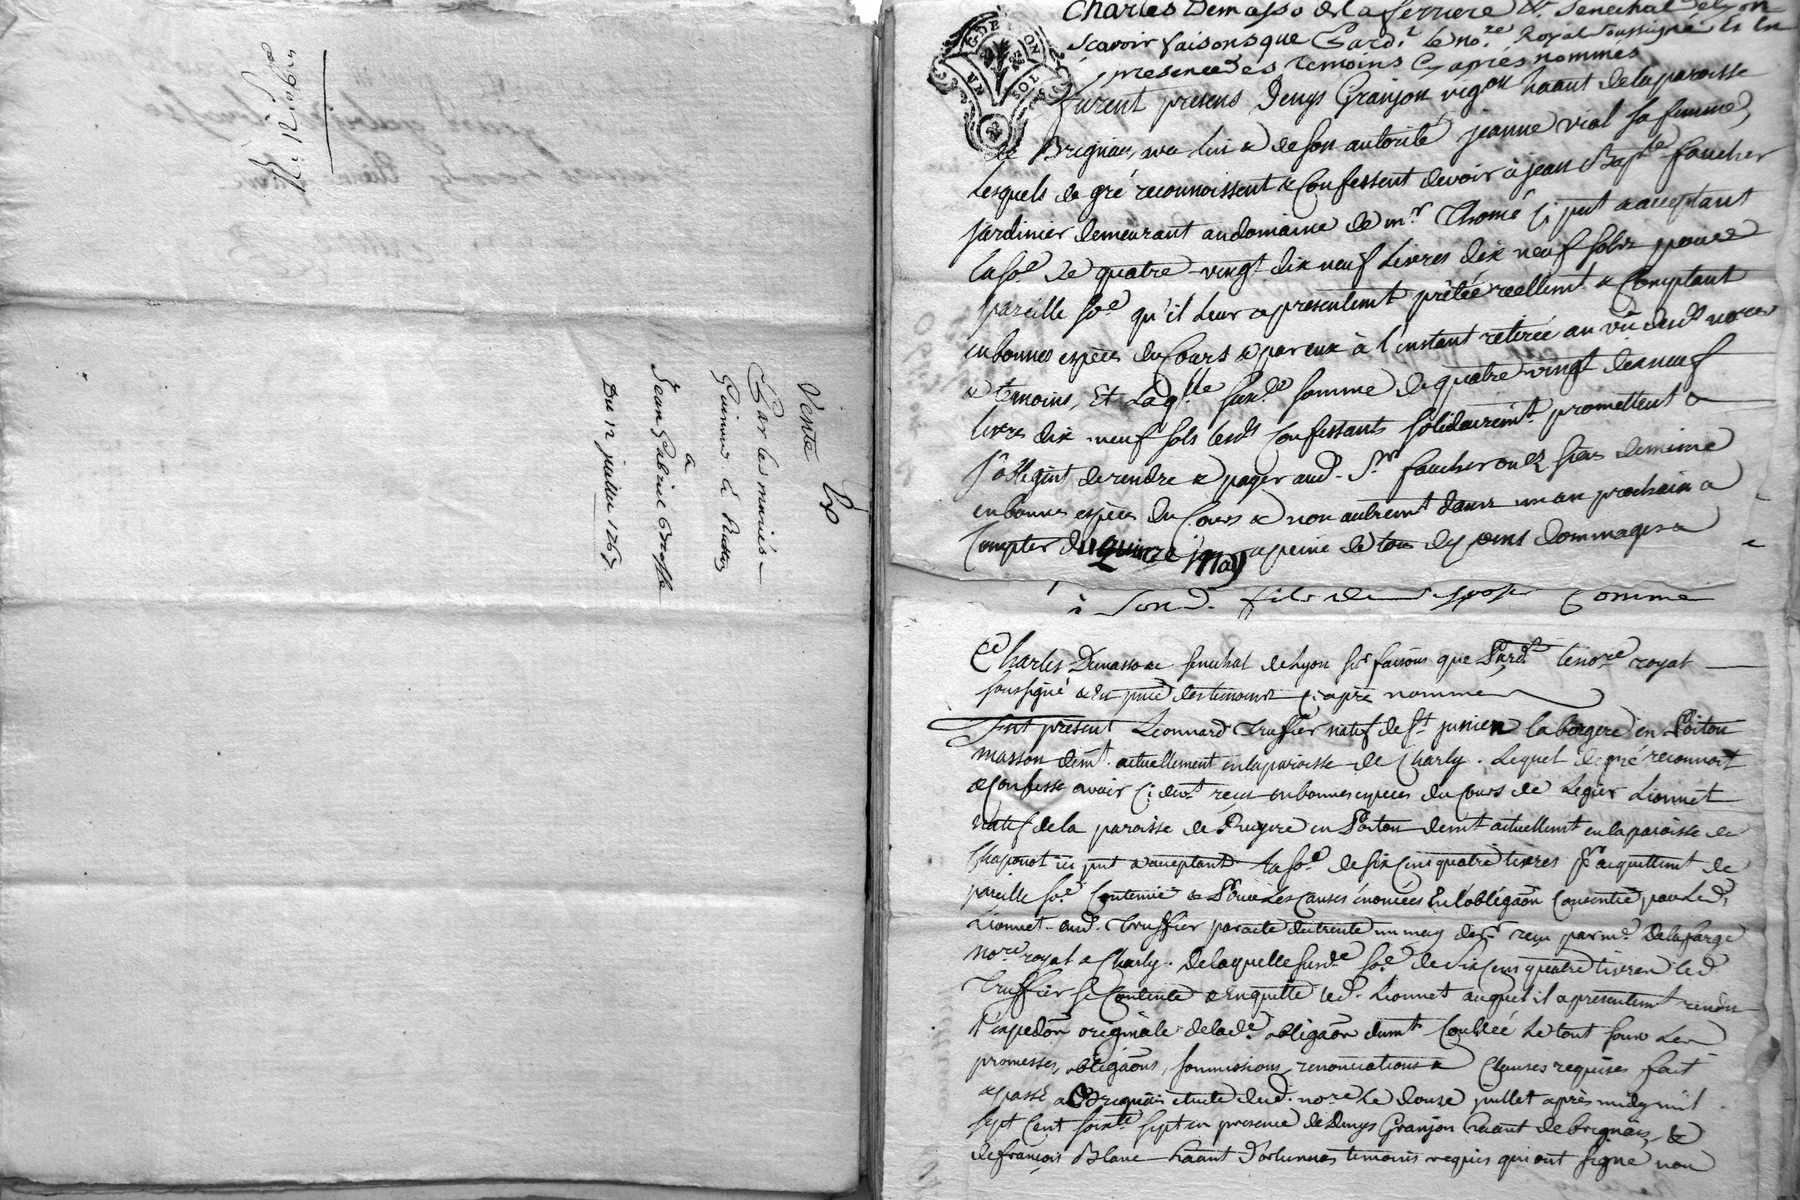 Vente
Par les mariés
à
Jean Gabriel
Du 12 juillet 1767
GDE LYON
SOL
Charles Demasso de la ferriere Sr. Senechal de Lyon
Scavoir faisons que Pardt. le nore. Royal soussigné Et En
presence des temoins Cy après nommés
furent presens Denys Granjon vigon haant de la paroisse
de Brignais, & de son autorité jeanne vial sa femme,
Lesquels de gré reconnoissent & Confessent devoir à jean Bapte. faucher
jardinier demeurant au domaine de mr. Thomé Ci pnt & acceptant
la soe. de quatre vingt dix neuf Livres dix neuf sols pour
pareille soe. qu'il leur a presentemt prêtée reellemt & Comptant
en bonnes espèces du Cours & par eux à l'instant retirée au vû desds nores
& temoins, Et Laqlle susde. somme de quatre vingt dixneuf
livres dix neuf sols lesds Confessants solidairemt promettent &
s'obligent de rendre & payer aud. Sr. faucher ou es siens de même
en bonnes espèces du Cours & non autremt dans un an prochain a
Compter du quinze may a peine de tous depens dommages &
à Sond. fils de disposer Comme
Charles Demasso &c. senechal de Lyon scr. faisons que Pardt. le nore. royal
soussigné & En pnce des temoins Ci après nommés
fut present Leonnard Truffier natif de St. junien la bregere en Poitou
masson demt. actuellement en la paroisse de Charly. Lequel de gré reconnoit
& Confesse avoir Ci devt. recu en bonnes especes du Cours de Legier Lionnet
natif de la paroisse de en Poitou demt actuellemt en la paroisse de
Chaponot ici pnt & acceptant la soe. de six cens quatre livres pr. acquittemt de
pareille soe. Contenüe & Pour Les Causes énoncées En l'obligaon Consentie par led.
Lionnet aud. Truffier par acte du trente un may der. recu par me. Delafarge
nore. royal a Charly. De laquelle susde. soe. de Six cens quatre livres led.
Truffier se Contente & En quitte led. Lionnet auquel il a presentemt rendu
l'Expedon originale de lade. obligaon dumt Conllée Le tout sous Les
promesses, obligaons, soumissions, renonciations & Clauses requises fait
& passé a Brignais etude dud. nore. Le douze juillet après midy mil
sept Cent soixte. sept en presence de Denys Granjon haant de brignais &
de françois Blanc haant d'orlienas temoins requis qui ont signé non